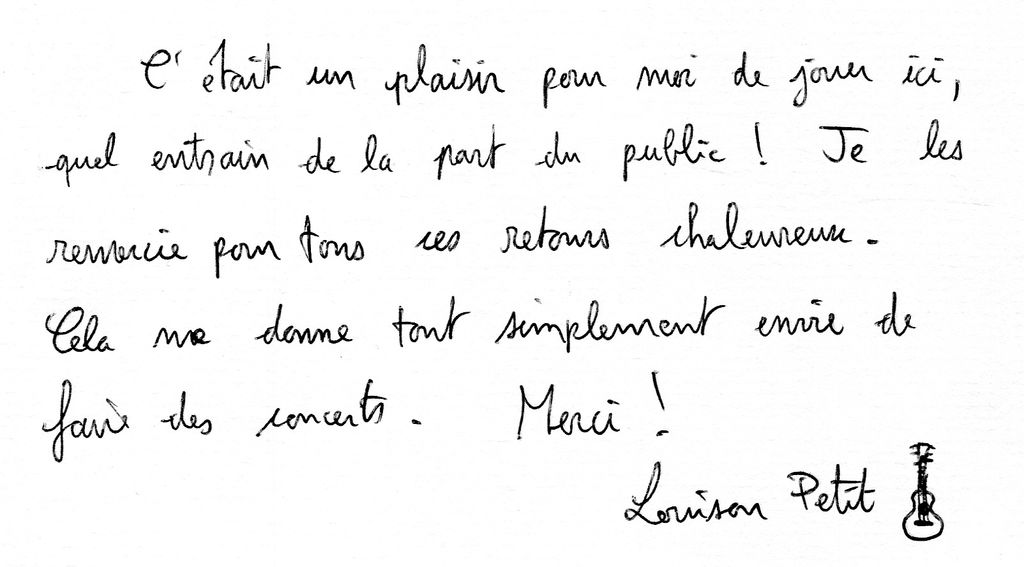 C'était un plaisir pour moi de jouer ici,
quel entrain de la part du public ! Je les
remercie pour tous ces retours chaleureux.
Cela me donne tout simplement envie de
faire des concerts. Merci !
Louison Petit